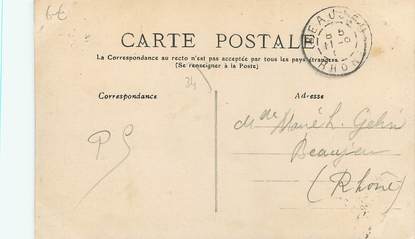 6€
CARTE POSTALE
La Correspondance au recto n'est pas acceptée par tous les pays étrangers
(Se renseigner à la Poste)
34
Correspondance
Adresse
BEAUJEU
RHONE
P S
Beaujeu
(Rhône)